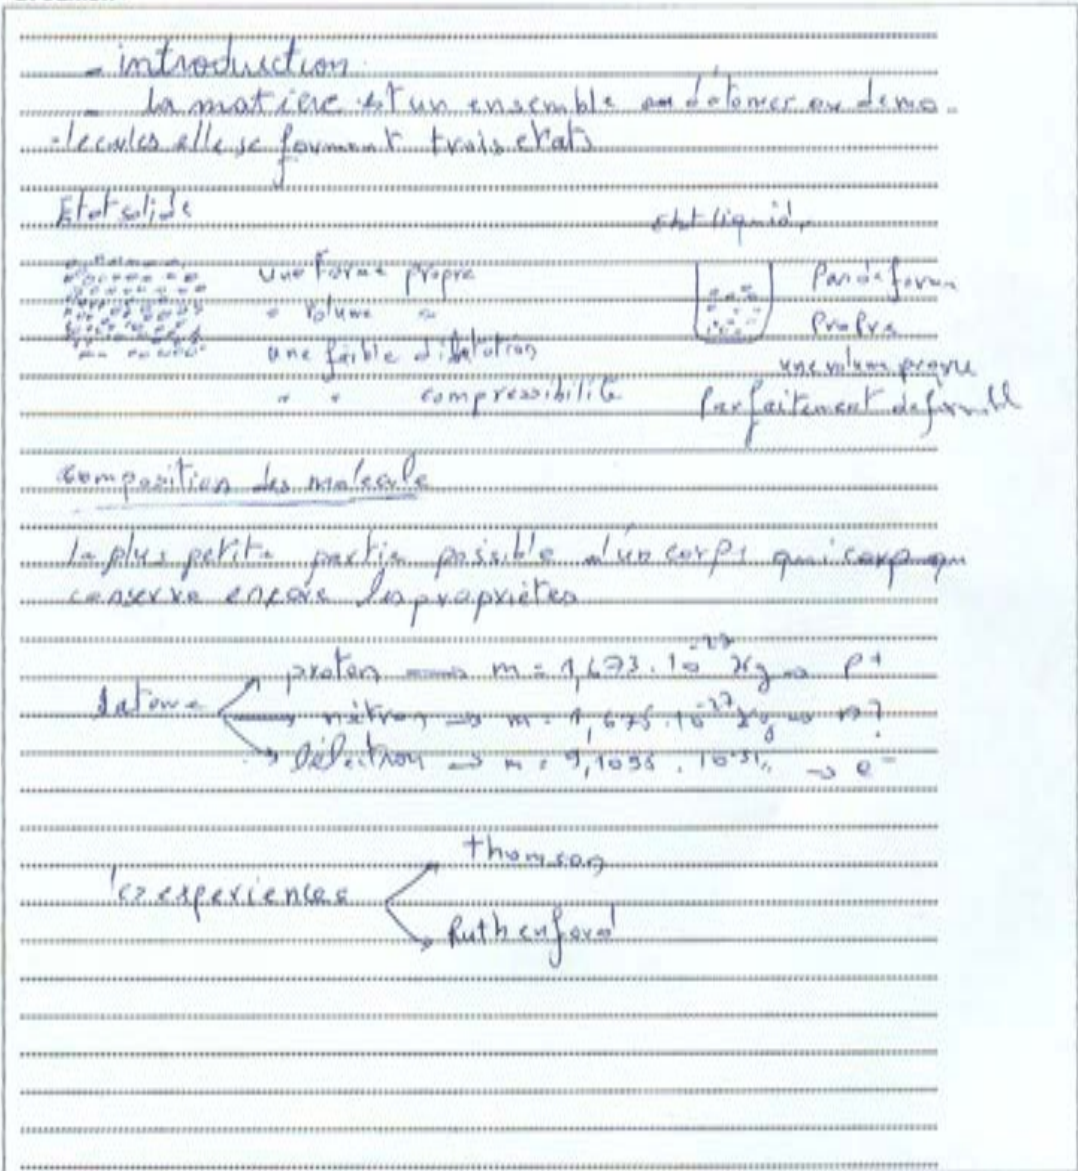 - introduction
- la matière est un ensemble ou d'atomer ou demo-
-lecules elle se forment trois etats
Etat solide
etat liquid.
une forme propre
" volume "
une faible dilatation
" " compressibilité
Pas de forme
Propre
une volum propre
Parfaitement deformabl
composition des molecule
la plus petite partie possible d'un corps qui corp qu
conserve encore les propriètes
Latome
proton → m = 1,673 . 10⁻²⁷ Kg → p+
nétron → m = 1,675 . 10⁻²⁷ Kg → n?
l'électron → m = 9,1095 . 10⁻³¹ " → e⁻
les experiences
Thomson
Ruthenford